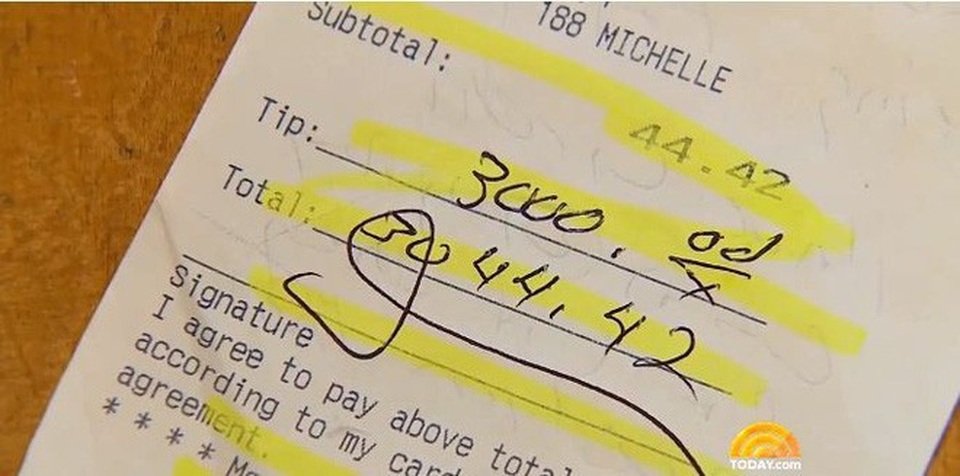 188 MICHELLE
Subtotal: 44.42
Tip: 3000.
Total: 3044.42
Signature
I agree to pay above total
according to my card
agreement.
* * * *
TODAY.com